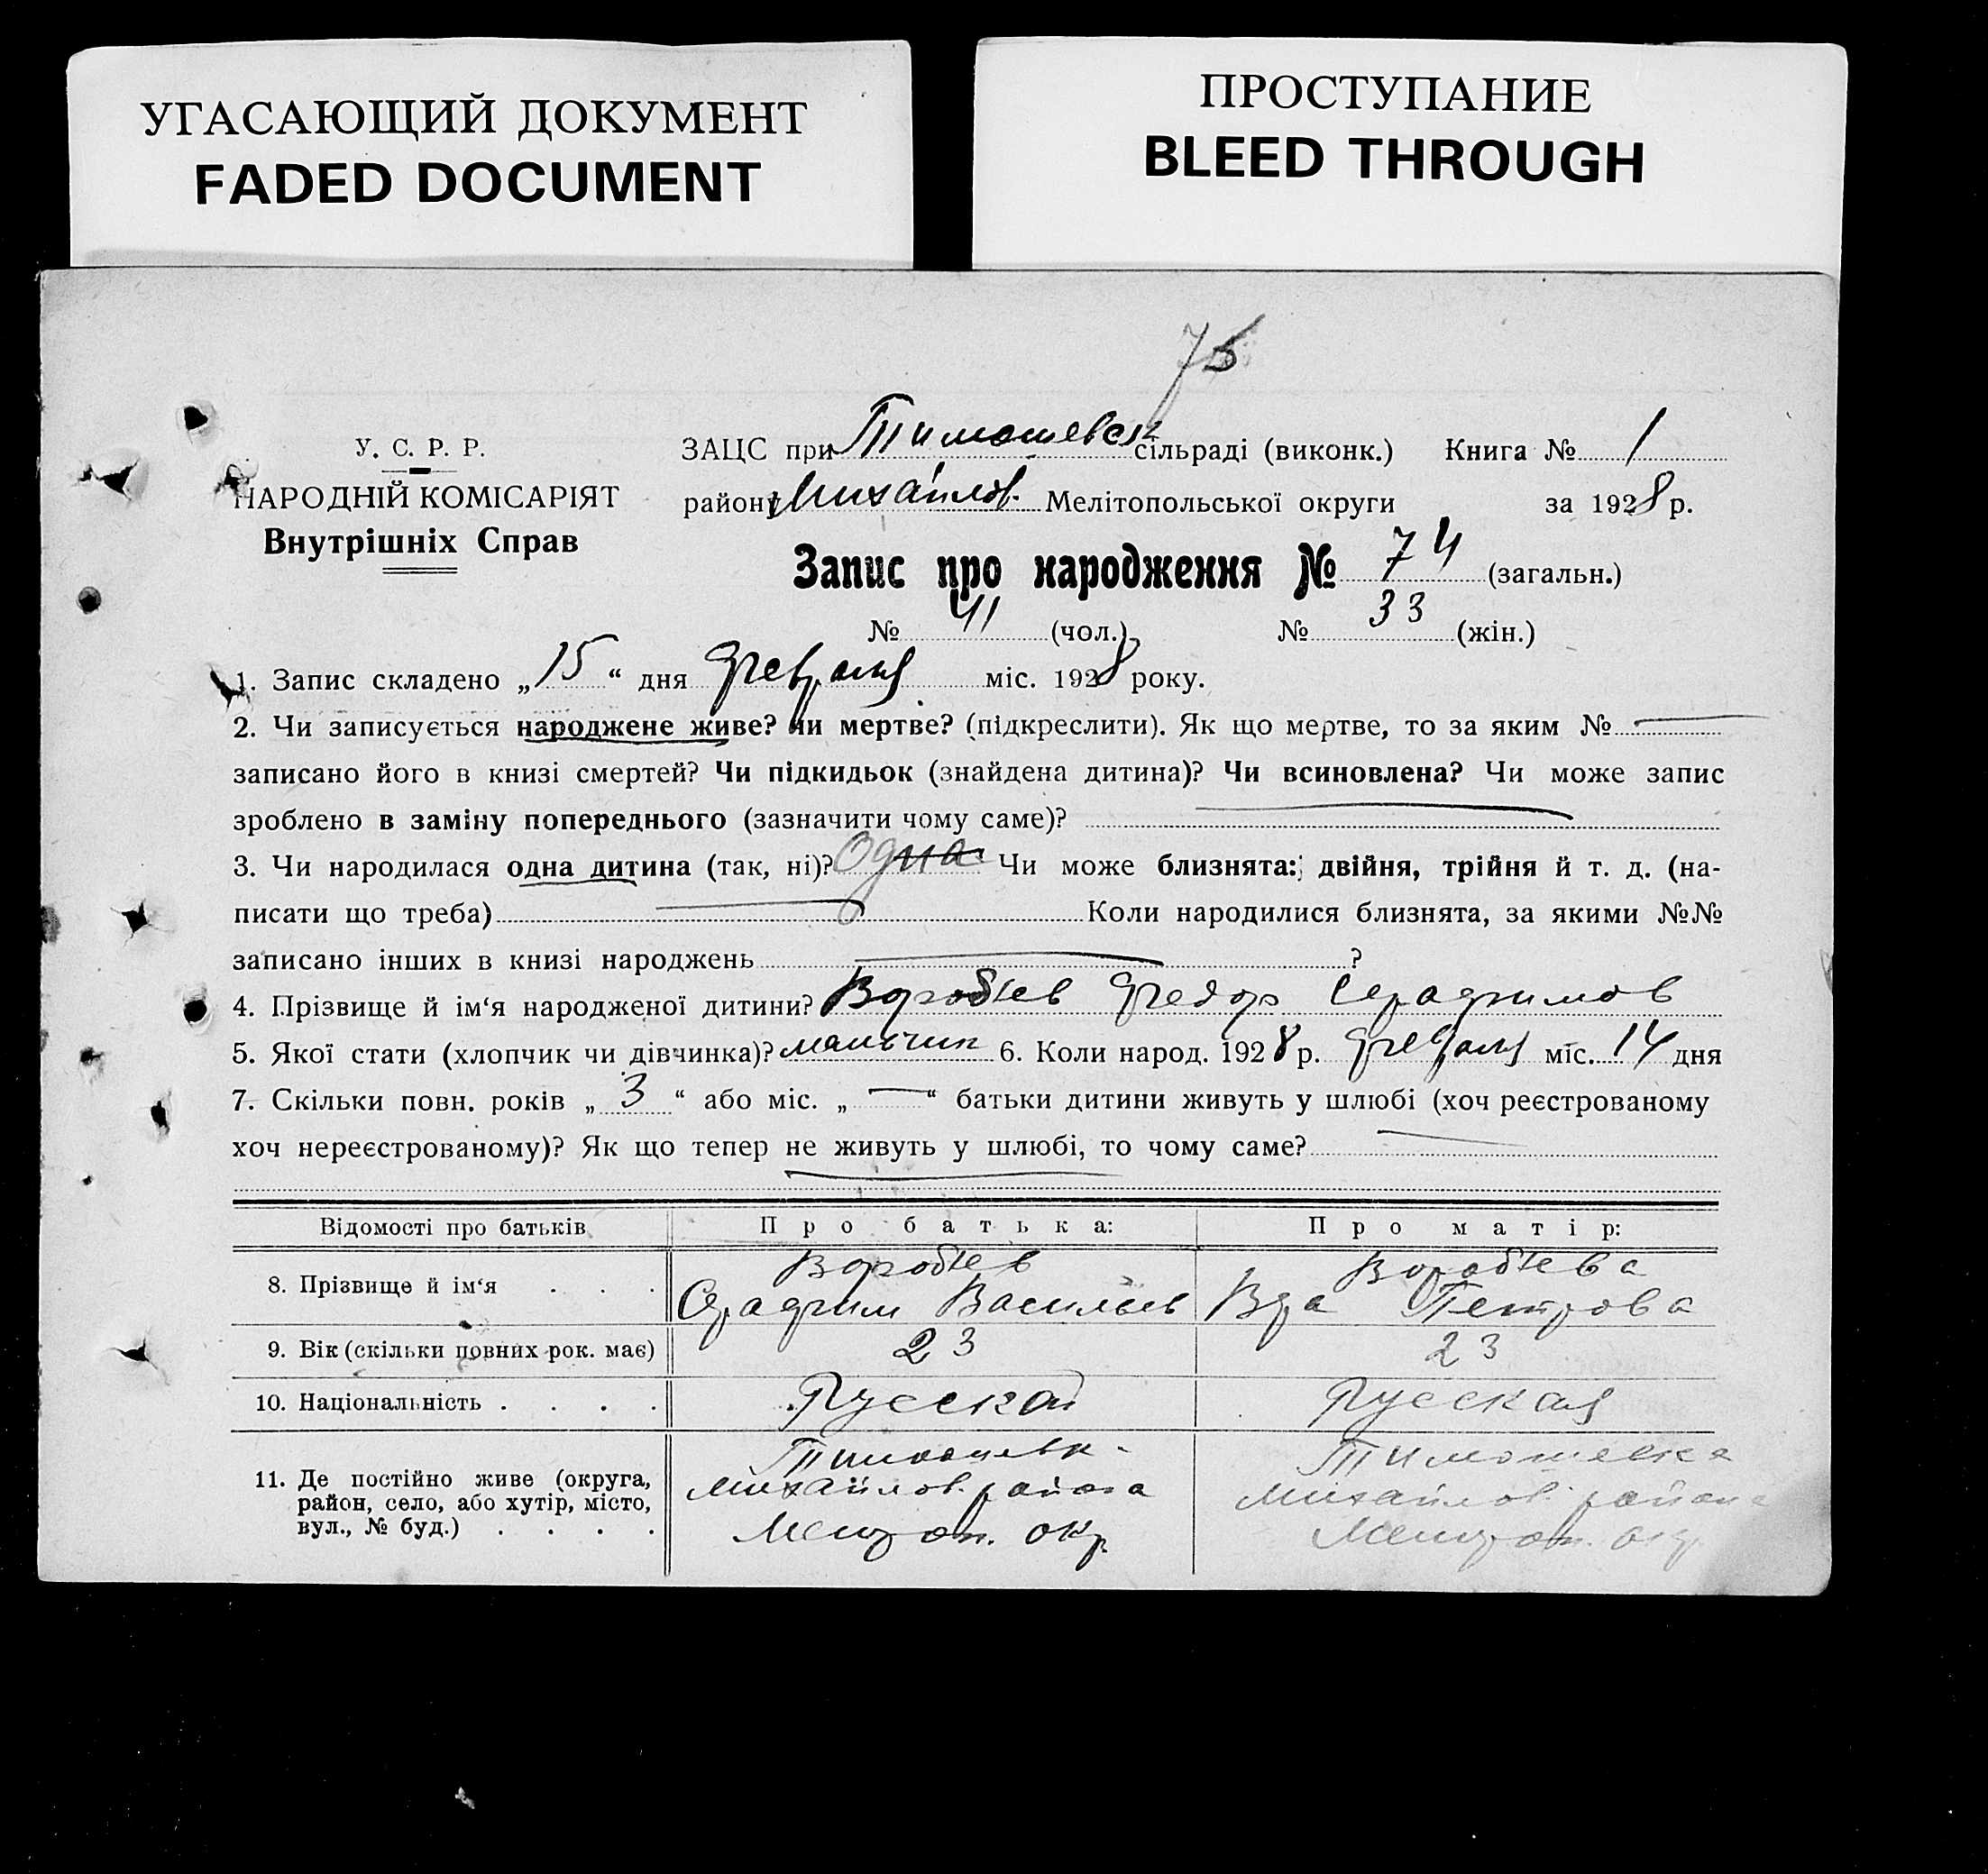 УГАСАЮЩИЙ ДОКУМЕНТ
FADED DOCUMENT
ПРОСТУПАНИЕ
BLEED THROUGH
75
У. С. Р. Р.
НАРОДНІЙ КОМІСАРІЯТ
Внутрішніх Справ
ЗАЦС при Тимошевск сільраді (виконк.) Книга № 1
району Михайлов. Мелітопольської округи за 1928 р.
Запис про народження № 74 (загальн.)
№ 41 (чол.) № 33 (жін.)
1. Запис складено „15“ дня Февраля міс. 1928 року.
2. Чи записується народжене живе? чи мертве? (підкреслити). Як що мертве, то за яким № —
записано його в книзі смертей? Чи підкидьок (знайдена дитина)? Чи всиновлена? Чи може запис
зроблено в заміну попереднього (зазначити чому саме)?
3. Чи народилася одна дитина (так, ні)? Одна Чи може близнята: двійня, трійня й т. д. (на-
писати що треба) — Коли народилися близнята, за якими №№
записано інших в книзі народжень — ?
4. Прізвище й ім‘я народженої дитини? Воробьев Федор Серафимов
5. Якої стати (хлопчик чи дівчинка)? мальчик 6. Коли народ. 1928 р. Февраля міс. 14 дня
7. Скільки повн. років „3“ або міс. „—“ батьки дитини живуть у шлюбі (хоч реєстрованому
хоч нереєстрованому)? Як що тепер не живуть у шлюбі, то чому саме? —
Відомості про батьків Про батька: Про матір:
8. Прізвище й ім‘я . . . Воробьев Серафим Васильев Воробьева Вра Петрова
9. Вік (скільки повних рок. має) 23 23
10. Національність . . . . Русский Русская
11. Де постійно живе (округа,
район, село, або хутір, місто,
вул., № буд.) . . . .
Тимошевк-
Михайлов. района
Мелитоп. окр.
Тимошевка
Михайлов. района
Мелитоп. окр.